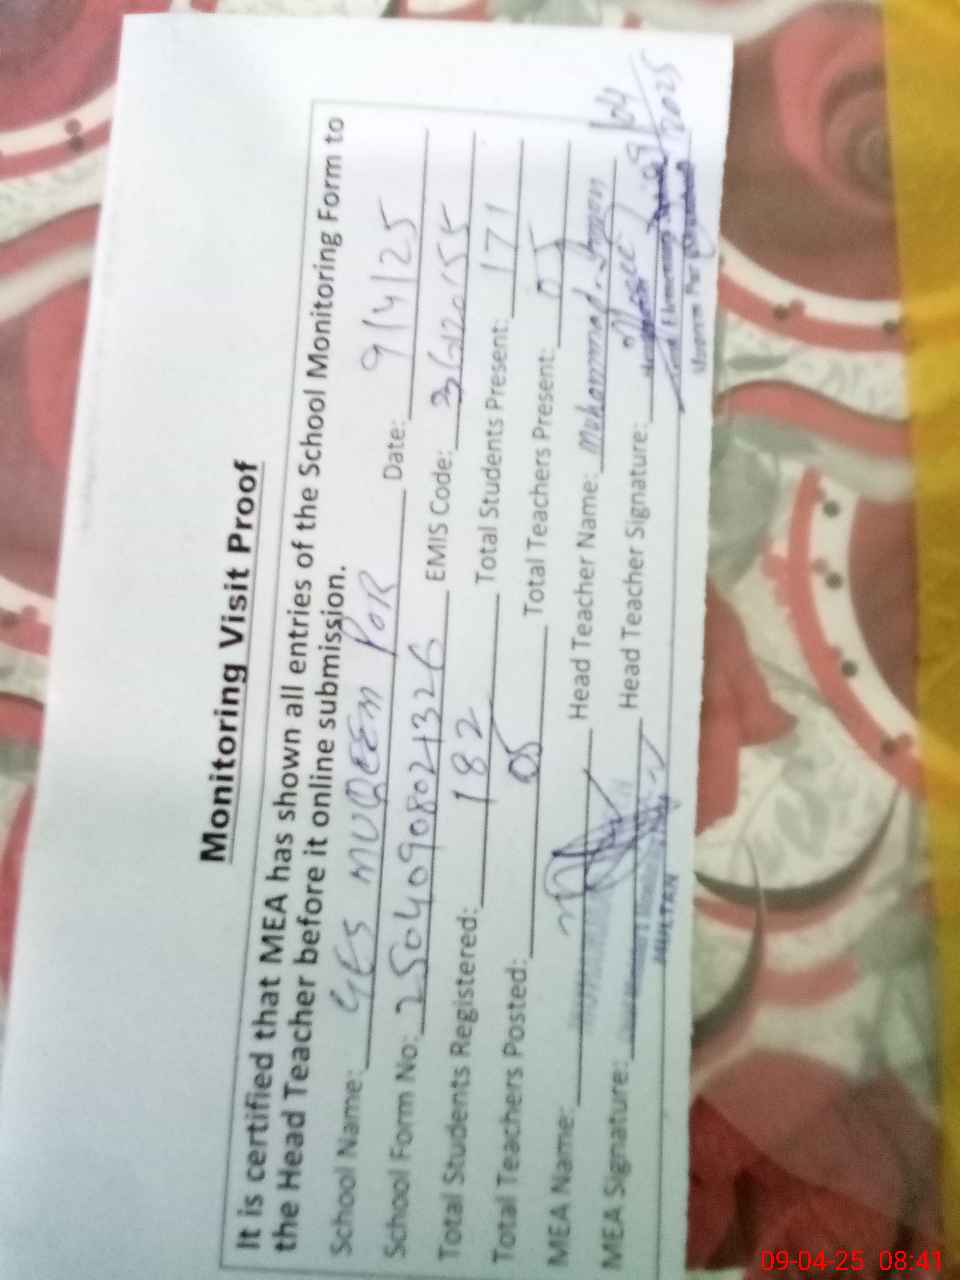 Monitoring Visit Proof
It is certified that MEA has shown all entries of the School Monitoring Form to
the Head Teacher before it online submission.
School Name: GES MUQEEM POR Date: 9/4/25
School Form No: 2504090821326 EMIS Code:
Total Students Registered: 182 Total Students Present: 171
Total Teachers Posted: 05 Total Teachers Present: 05
MEA Name: Head Teacher Name: Muhammad
MEA Signature: Head Teacher Signature: 9/04/2025
MULTAN
09-04-25 08:41